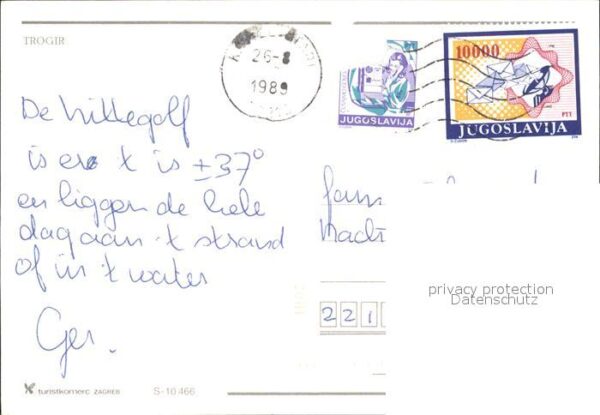 TROGIR
26-8
1989
10000
PTT
JUGOSLAVIJA
JUGOSLAVIJA
De hittegolf
is ero 't is ±37°
en liggen de hele
dag aan 't strand
of in 't water
Ger.
fam
221
privacy protection
Datenschutz
turistkomerc ZAGREB
S-10 466